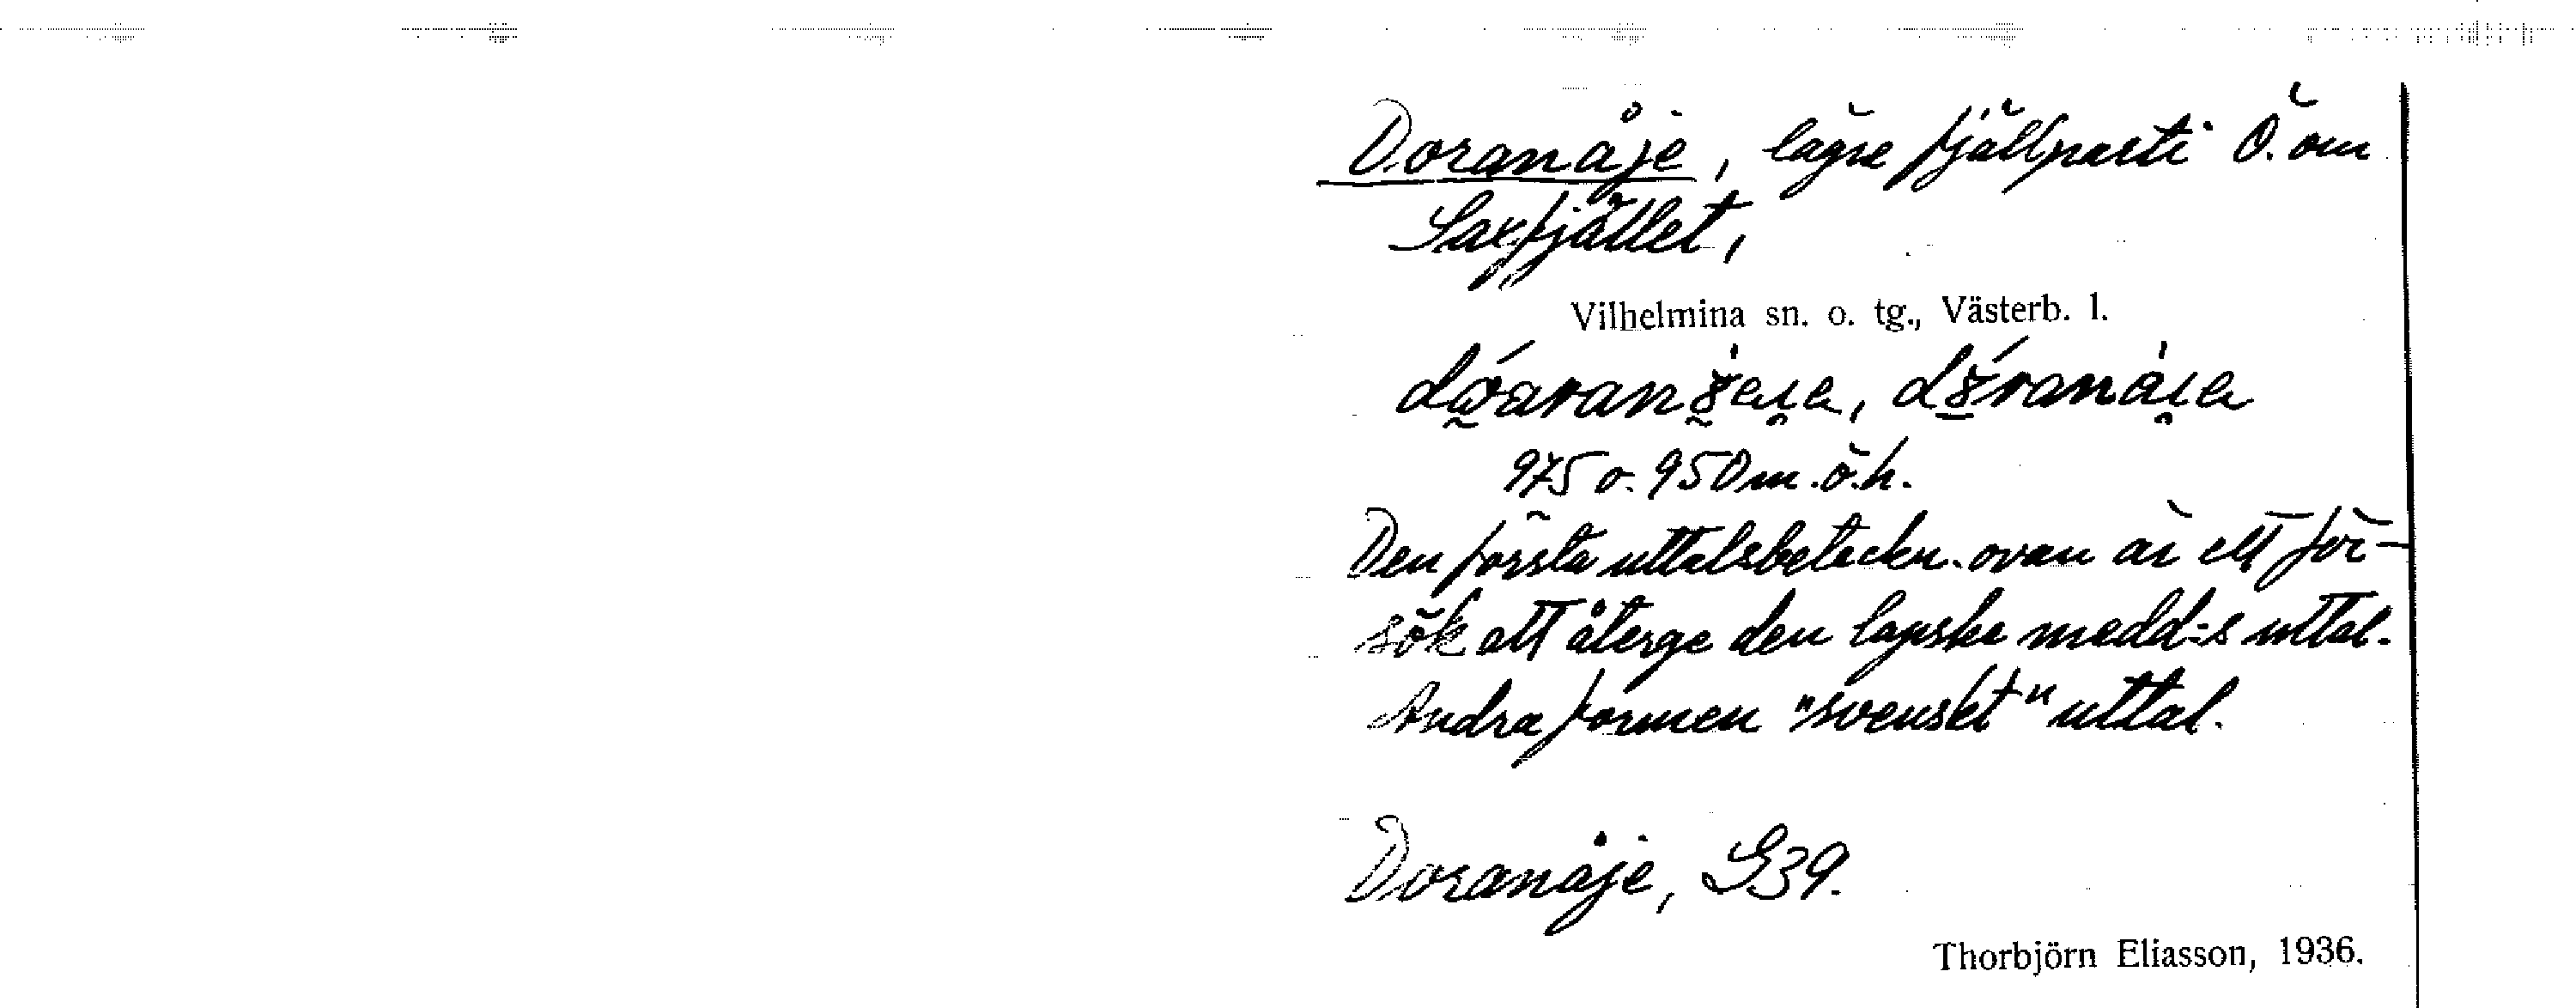 Doranåje, lägre fjällparti Ö. om
Saxfjället,
Vilhelmina sn. o. tg., Västerb. l.
975 o. 950 m.ö.h.
Den första uttalsbeteckn. ovan är ett för-
sök att återge den lapske medd:s uttal.
Andra formen "svenskt" uttal.
Doranåje, G39.
Thorbjörn Eliasson, 1936.